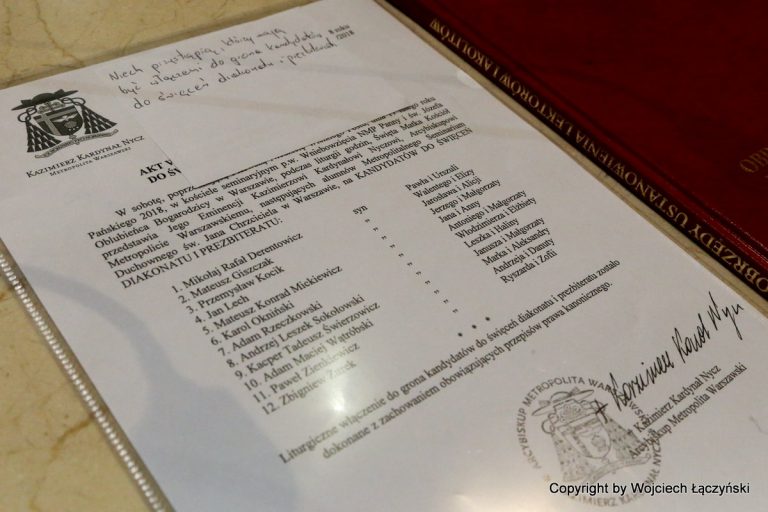 Niech przystąpią i którzy mają
być włączeni do grona kandydatów
do święceń diakonatu i prezbiteratu
8 roku
/2018
KAZIMIERZ KARDYNAŁ NYCZ
METROPOLITA WARSZAWSKI
AKT W
DO ŚW
W sobotę, poprz
roku
Pańskiego 2018, w kościele seminaryjnym p.w. Wniebowzięcia NMP Panny i św. Józefa
Oblubieńca Bogarodzicy w Warszawie, podczas liturgii godzin, Święta Matka Kościół
przedstawia Jego Eminencji Kazimierzowi Kardynałowi Nyczowi, Arcybiskupowi
Metropolicie Warszawskiemu, następujących alumnów Metropolitalnego Seminarium
Duchownego św. Jana Chrzciciela w Warszawie, na KANDYDATÓW DO ŚWIĘCEŃ
DIAKONATU I PREZBITERATU:
1. Mikołaj Rafał Derentowicz syn Pawła i Urszuli
2. Mateusz Giszczak „ Walentego i Elizy
3. Przemysław Kocik „ Jarosława i Alicji
4. Jan Lech „ Jerzego i Małgorzaty
5. Mateusz Konrad Mickiewicz „ Jana i Anny
6. Karol Okniński „ Antoniego i Małgorzaty
7. Adam Rzeczkowski „ Włodzimierza i Elżbiety
8. Andrzej Leszek Sokołowski „ Leszka i Haliny
9. Kacper Tadeusz Świerzowicz „ Janusza i Małgorzaty
10. Adam Maciej Wątróbski „ Marka i Aleksandry
11. Paweł Zienkiewicz „ Andrzeja i Danuty
12. Zbigniew Żarek „ Ryszarda i Zofii
* * *
Liturgiczne włączenie do grona kandydatów do święceń diakonatu i prezbiteratu zostało
dokonane z zachowaniem obowiązujących przepisów prawa kanonicznego.
+ Kazimierz Kard. Nycz
+ Kazimierz Kardynał Nycz
Arcybiskup Metropolita Warszawski
ARCYBISKUP METROPOLITA WARSZAWSKI
KAZIMIERZ KARDYNAŁ NYCZ
OBRZĘDY USTANOWIENIA LEKTORÓW I AKOLITÓW
Copyright by Wojciech Łączyński